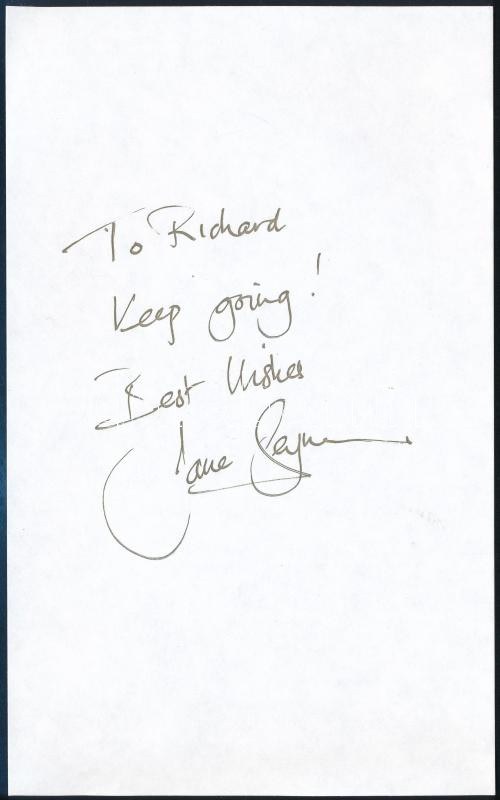 To Richard
Keep going!
Best Wishes
Jane Seymour